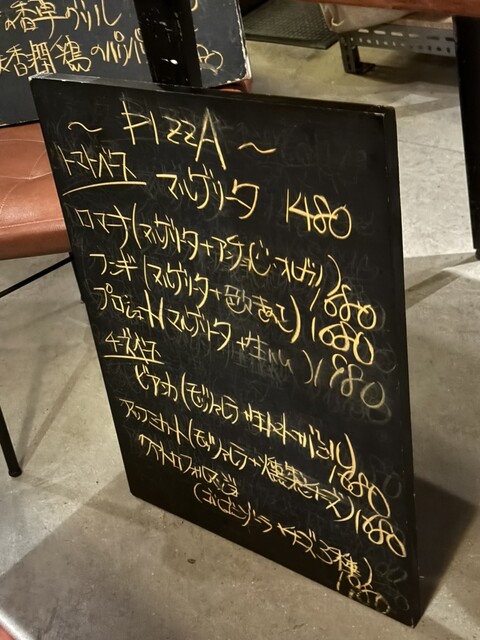 の香草グリル
香潤鶏のパパ
~ PIZZA ~
トマトベース
マルゲリータ 1480
ロマーナ(マルゲリータ+アンチョビ・オリーブ) 1680
フンギ(マルゲリータ+きのこ) 1680
プロシュート(マルゲリータ+生ハム) 1980
チーズベース
ビアンカ(モッツァレラ+生トマト+バジル) 1680
アッフミカート(モッツァレラ+燻製チーズ) 1680
クアトロフォルマッジ
(ゴルゴンゾーラ+チーズ3種)
1880